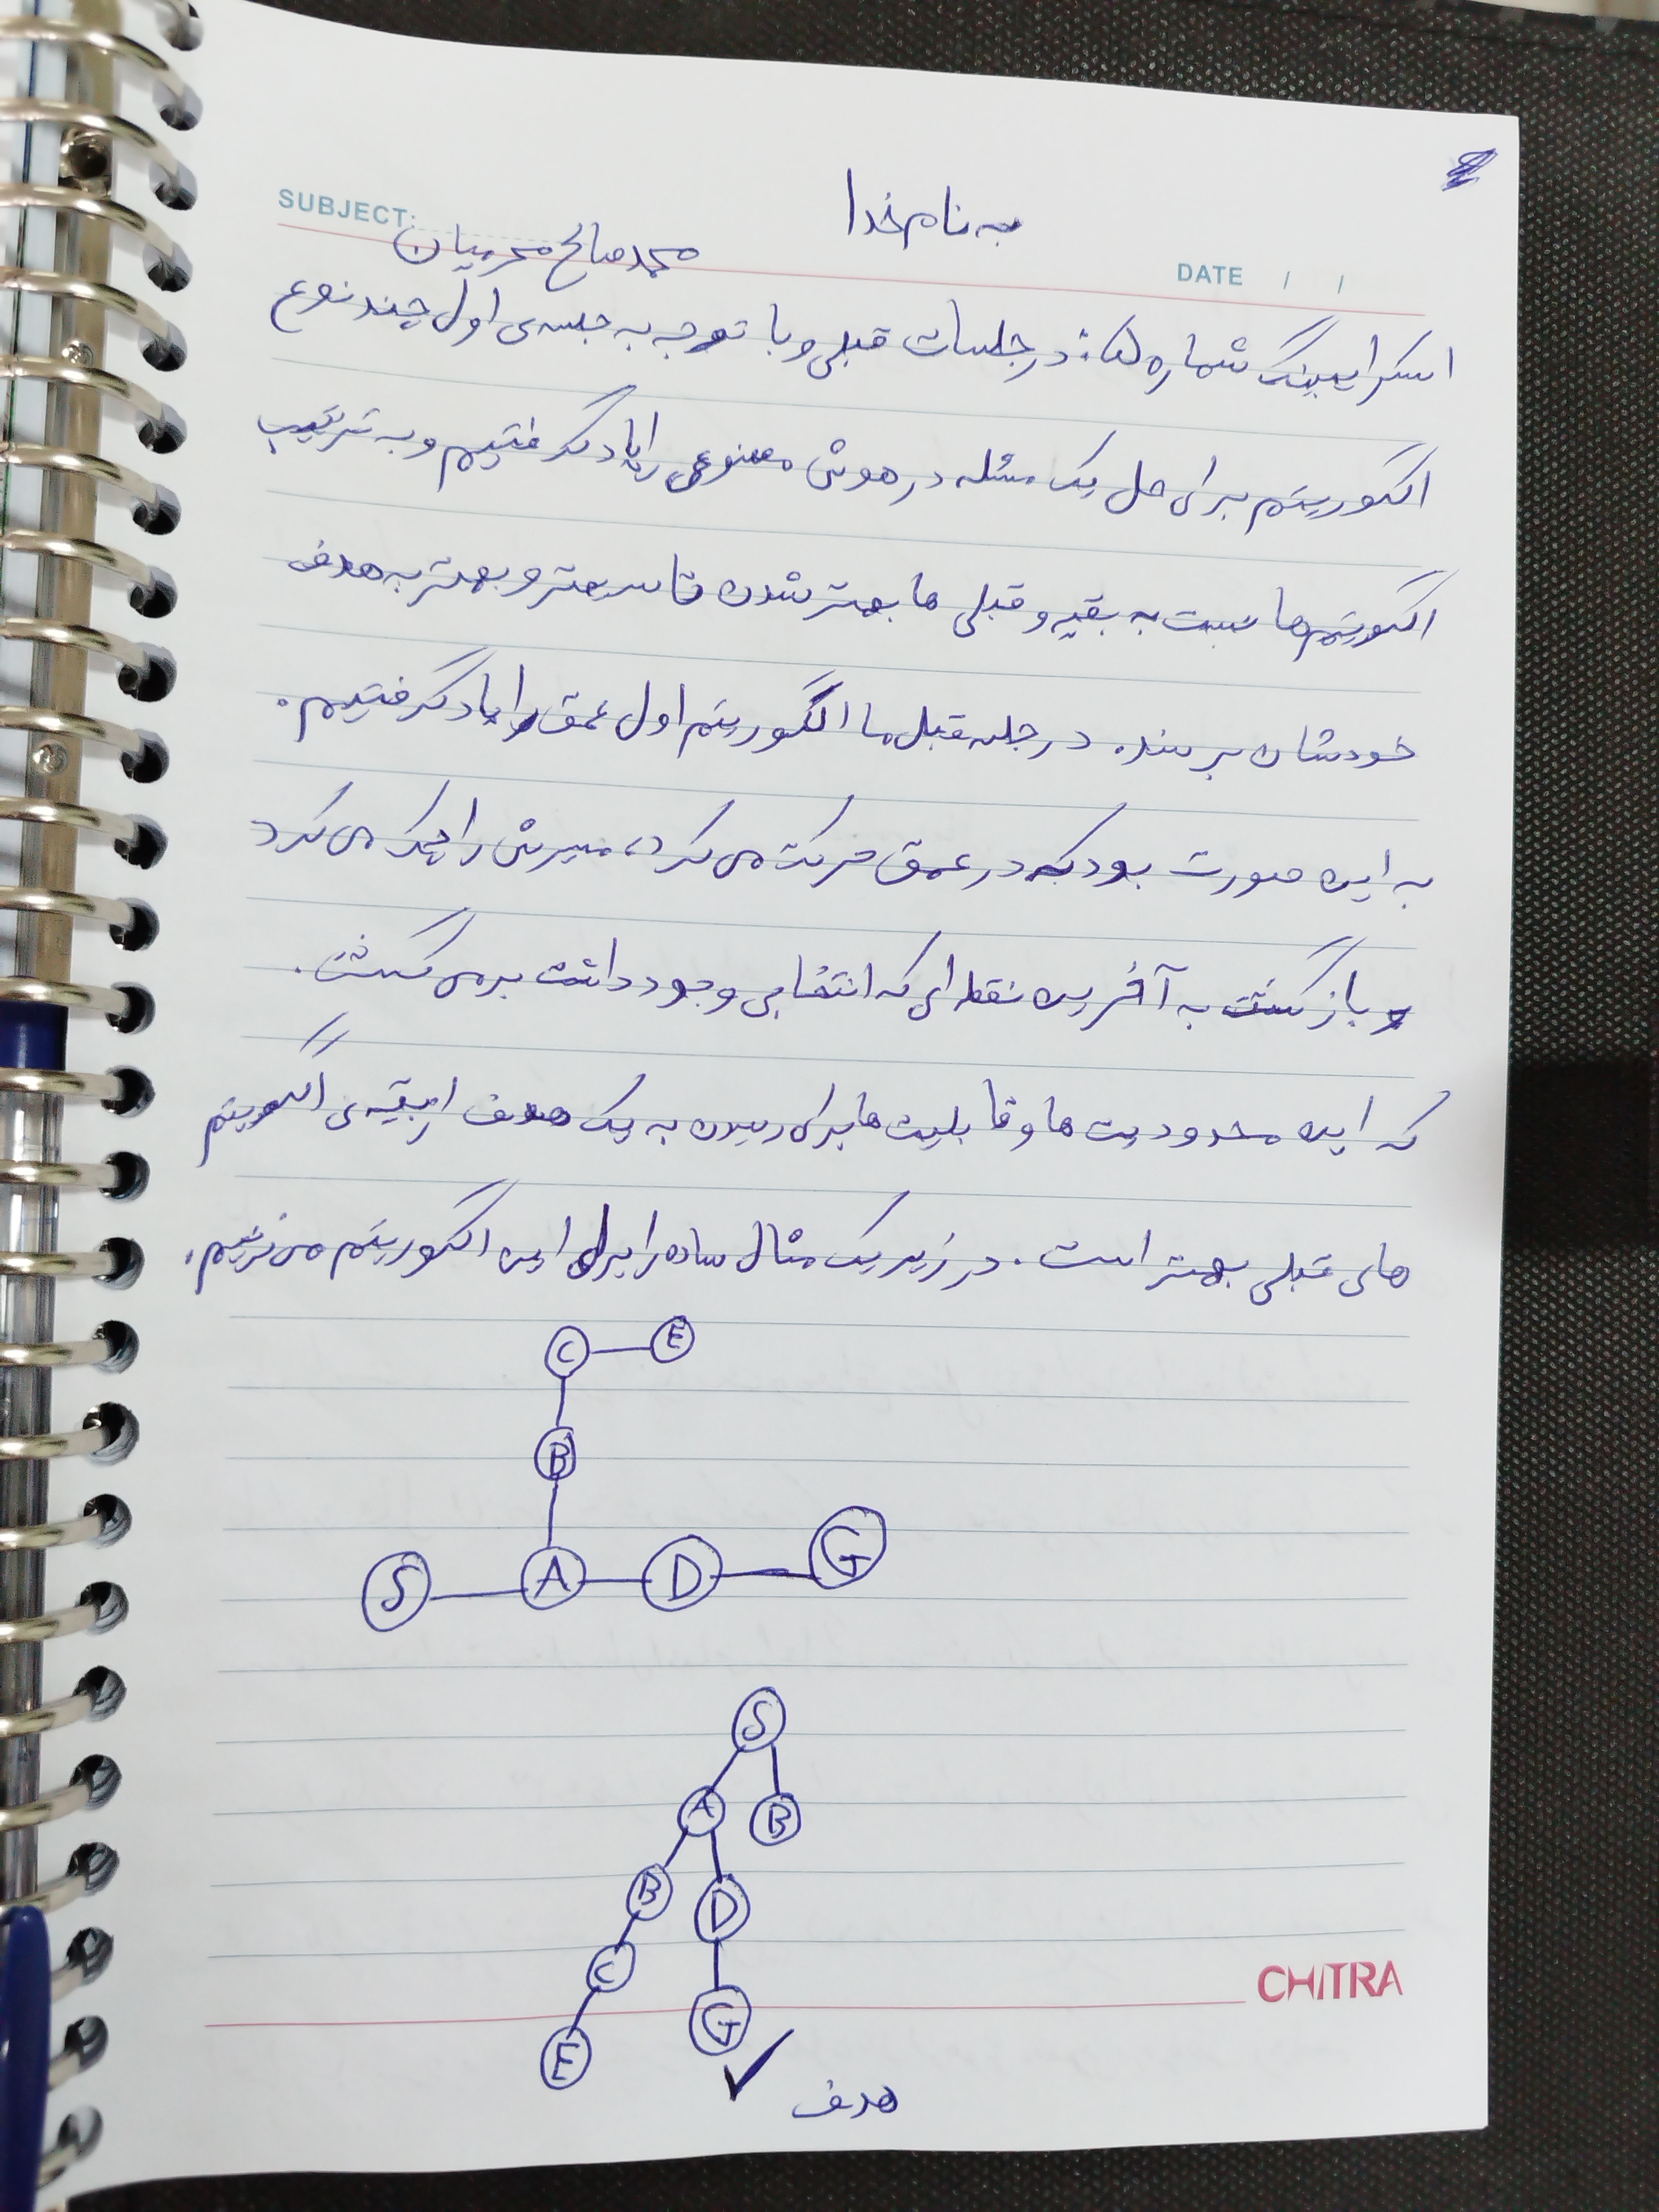 به نام خدا
SUBJECT:
محمد صالح محرمیان
DATE / /
اسکرایبینگ شماره ۵: در جلسات قبلی و با توجه به جلسه‌ی اول چند نوع
الگوریتم برای حل یک مسئله در هوش مصنوعی را یاد گرفتیم و به ترتیب
الگوریتم‌ها نسبت به بقیه و قبلی ها بهتر شدن تا سریعتر و بهتر به هدف
خودشان برسند. در جلسه قبل ما الگوریتم اول عمق را یاد گرفتیم.
به این صورت بود که در عمق حرکت می کرد، مسیرش را چک می کرد
و بازگشت به آخرین نقطه ای که انتخابی وجود داشت برمی گشت.
که این محدودیت ها و قابلیت ها برای رسیدن به یک هدف از بقیه‌ی الگوریتم
های قبلی بهتر است. در زیر یک مثال ساده را برای این الگوریتم می زنیم.
C E
B
S A D G
S
A B
B D
C
G
E
هدف
CHITRA